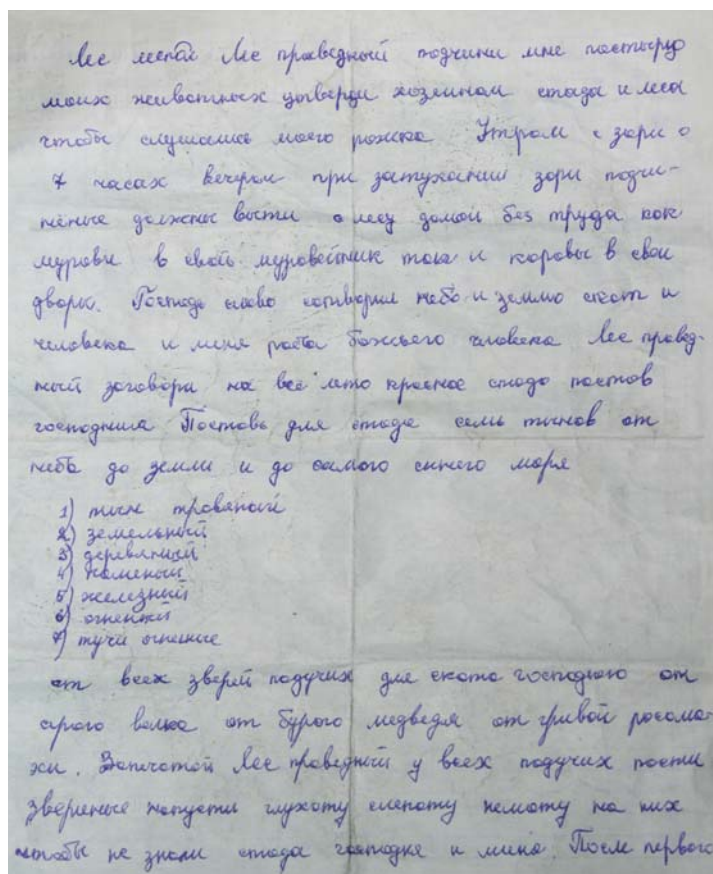 Лес лепой Лес праведный подчини мне пастырю
моих животных утверди хозяином стада и леса
чтобы слушались моего рожка Утром с зари о
7 часах вечером при затухании зори подчи-
неные должны выти с лесу домой без труда как
муровьи в свой муровейник така и коровы в свои
дворы. Господь слово сотворил небо и землю скот и
человека и меня раба божьего человека Лес правед-
ный заговори на всё лето красное стадо
господния Поставь для стада семь тынов от
неба до земли и до самого синего моря
1) тын травяной
2) земельный
3) деревянный
4) каменый
5) железный
6) огненный
7) тучи огненые
от всех зверей падучих для скота господнего от
серого волка от бурого медведя от гривой росома-
хи. Запечатай Лес праведный у всех падучих пасти
звериные напусти глухоту слепоту немоту на них
чтобы не знали стада господня и миня. После первого